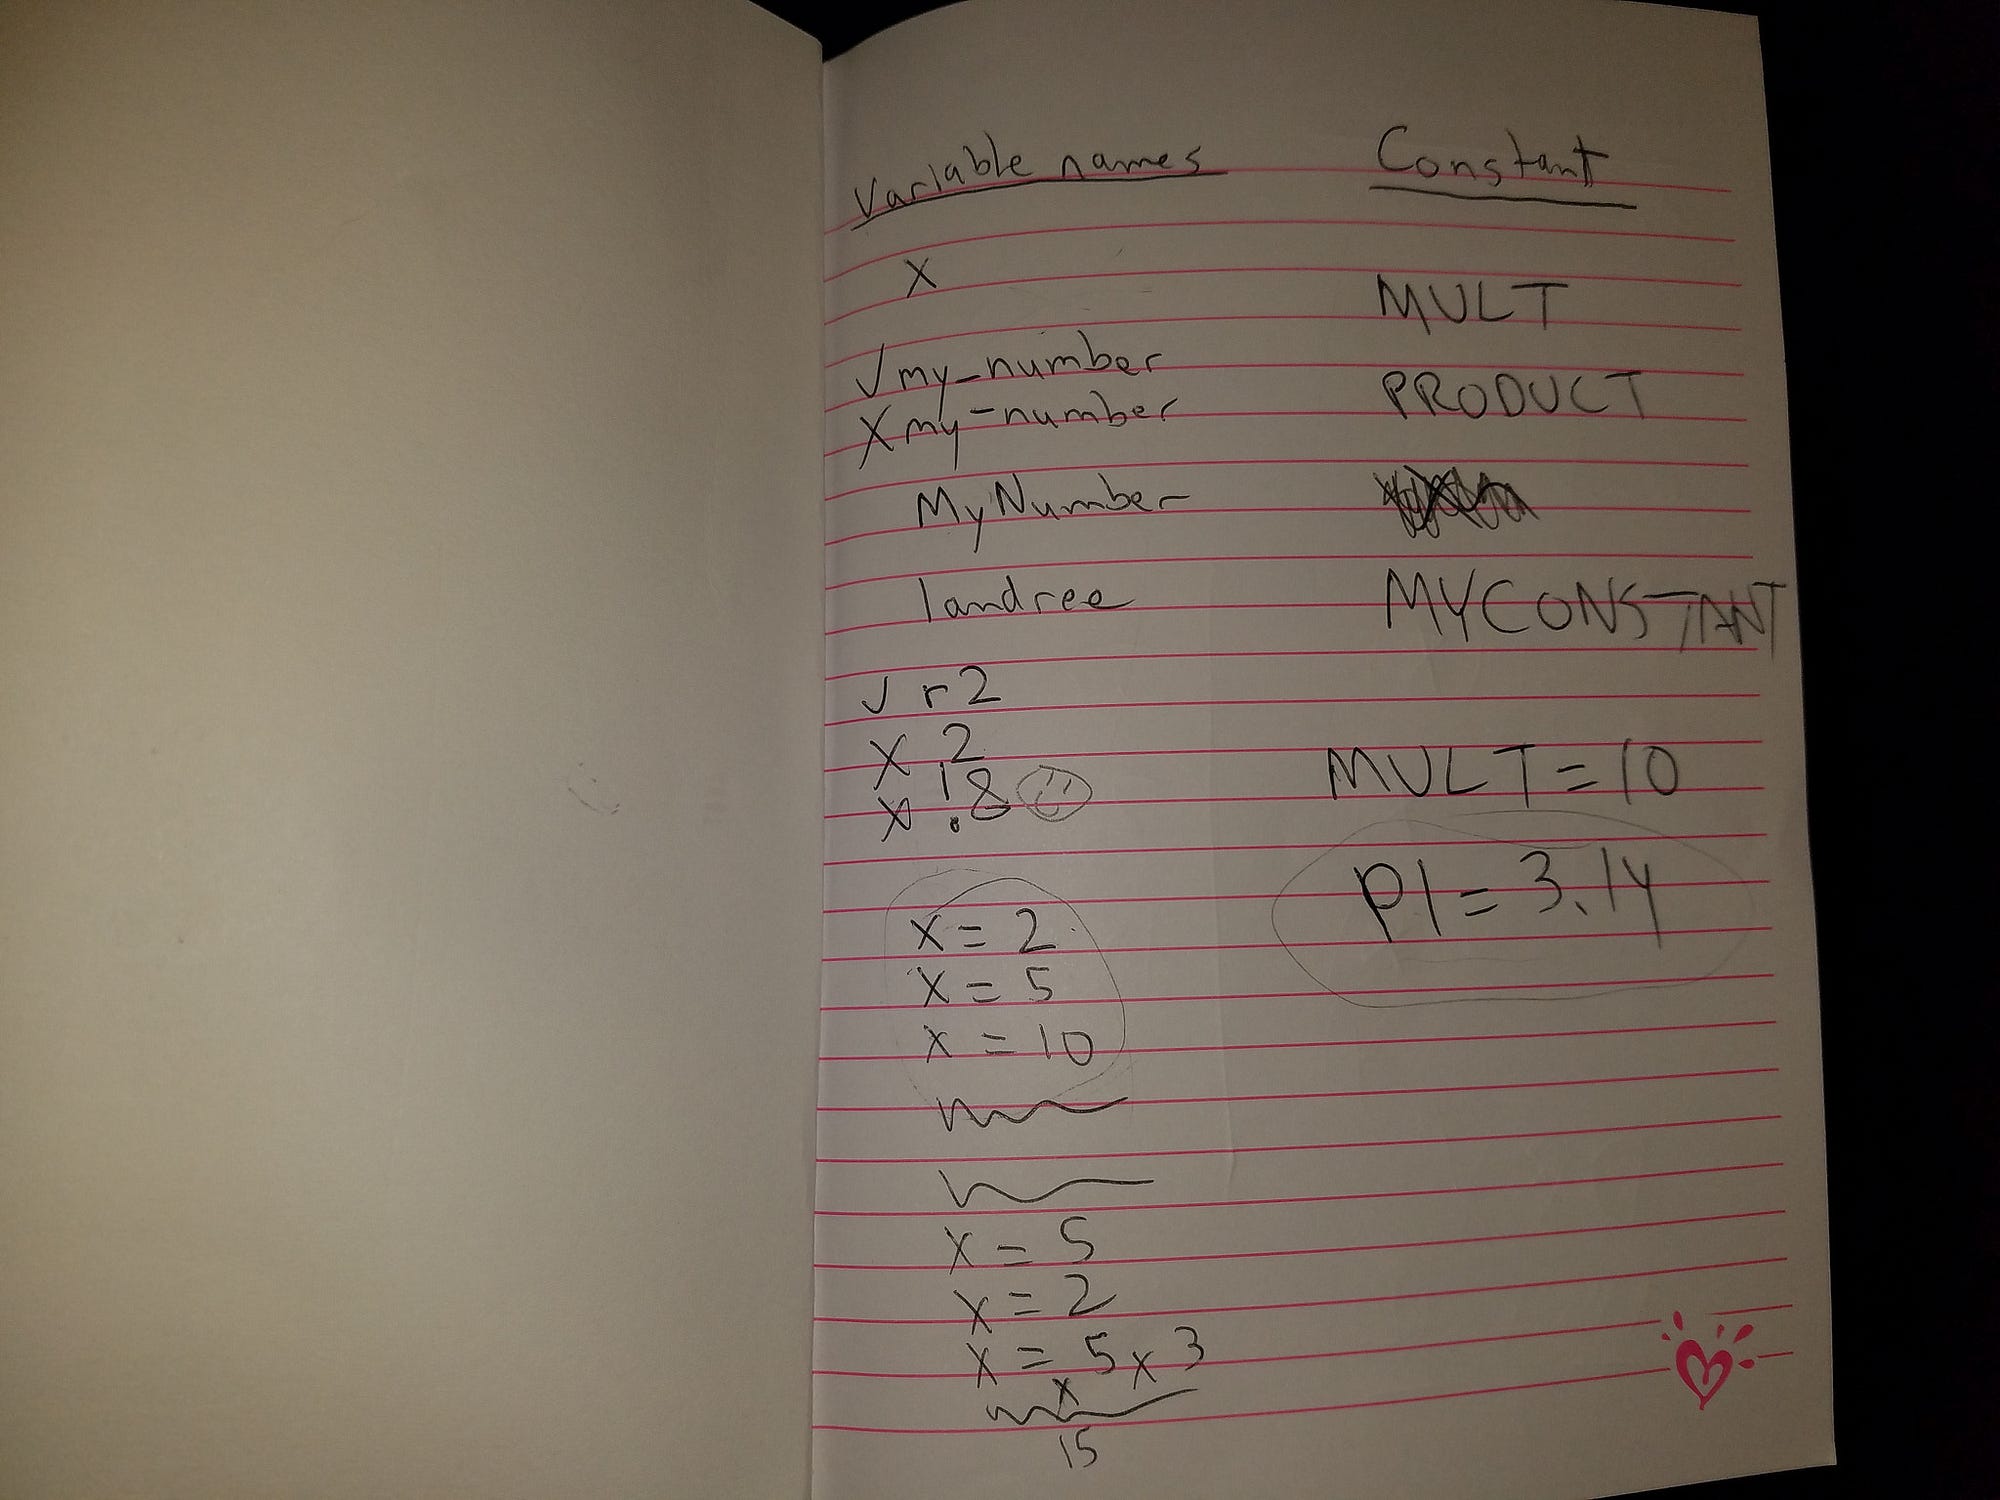 Variable names
x
✓ my_number
X my-number
MyNumber
landree
✓ r2
X 2
X !8
x = 2
x = 5
x = 10
x = 5
x = 2
x = 5 x 3
x
15
Constant
MULT
PRODUCT
MYCONSTANT
MULT = 10
PI = 3.14